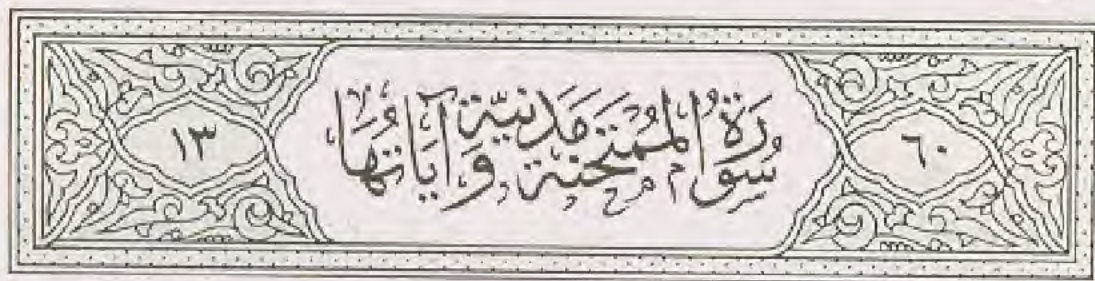 ٦٠
سُورَةُ المُمْتَحنَة مَدَنيَّة وَآيَاتُهَا
١٣